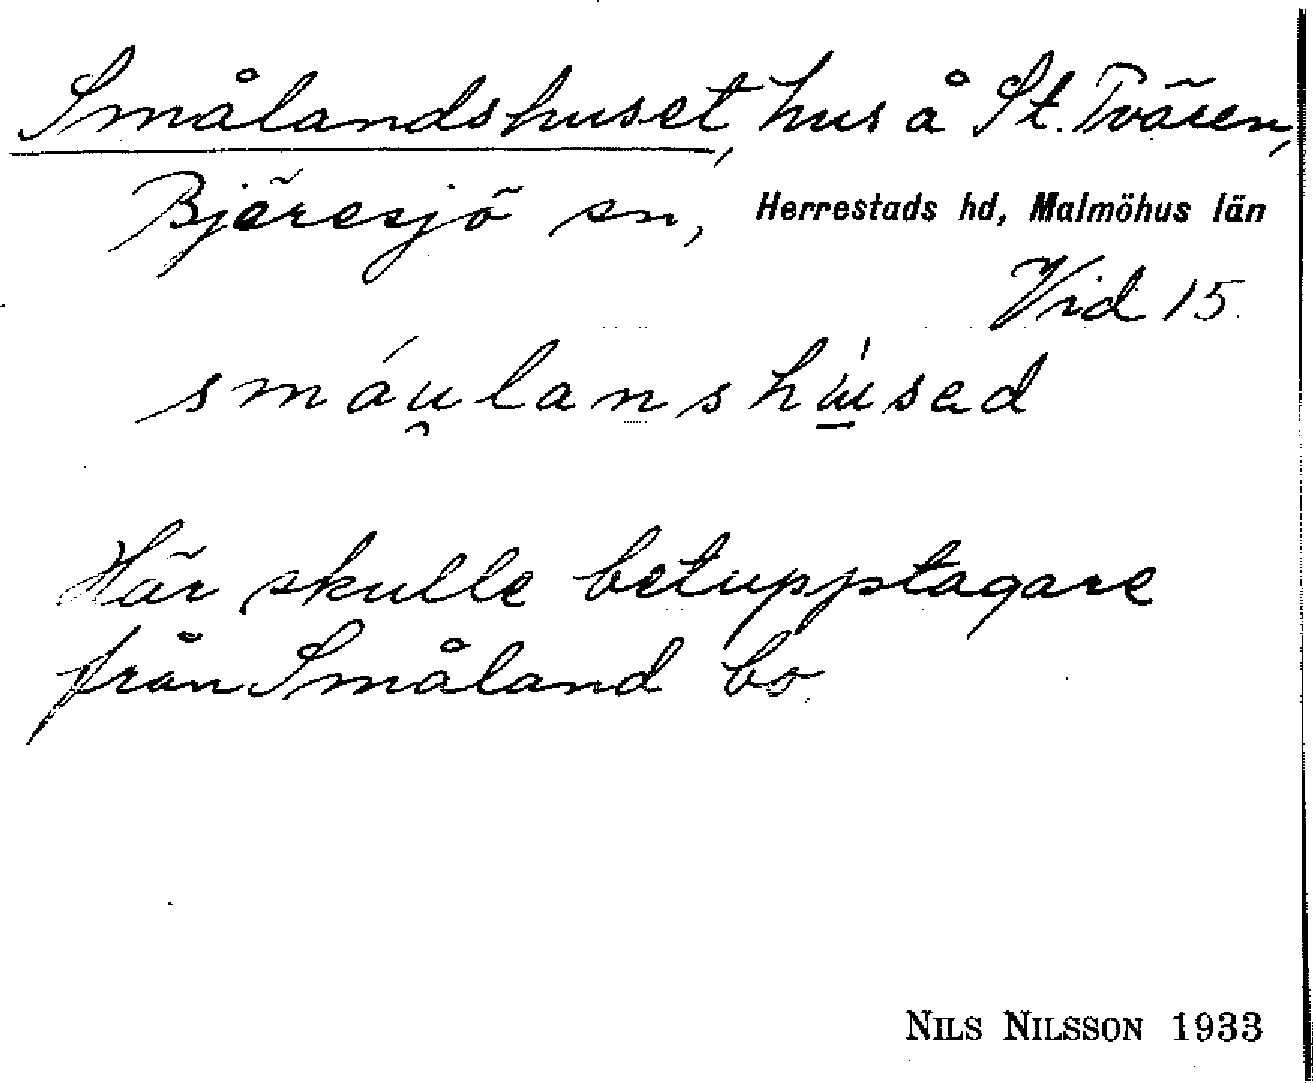 Smålandshuset, hus å St. Tvären,
Bjäresjö sn, Herrestads hd, Malmöhus län
Vid 15.
smáu̯lanshu̍sad
Här skulle betupptagare
från Småland bo
NILS NILSSON 1933